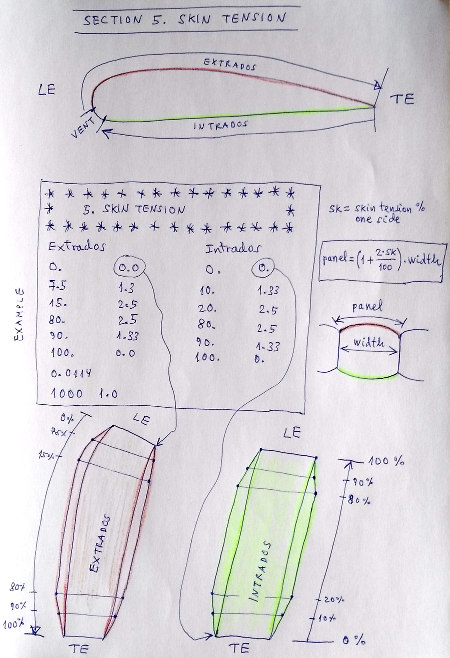 SECTION 5. SKIN TENSION
EXTRADOS
LE
TE
VENT
INTRADOS
* * * * * * * * * * * * * * *
* 5. SKIN TENSION *
* * * * * * * * * * * * * * *
Extrados Intrados
0. 0.0 0. 0.
7.5 1.3 10. 1.33
15. 2.5 20. 2.5
80. 2.5 80. 2.5
90. 1.33 90. 1.33
100. 0.0 100. 0.
0.0114
1000 1.0
EXAMPLE
SK = skin tension %
one side
panel = (1 + 2·SK/100) · width
panel
width
0%
7.5%
15%
80%
90%
100%
LE
EXTRADOS
TE
LE
INTRADOS
TE
100 %
90%
80%
20%
10%
0 %